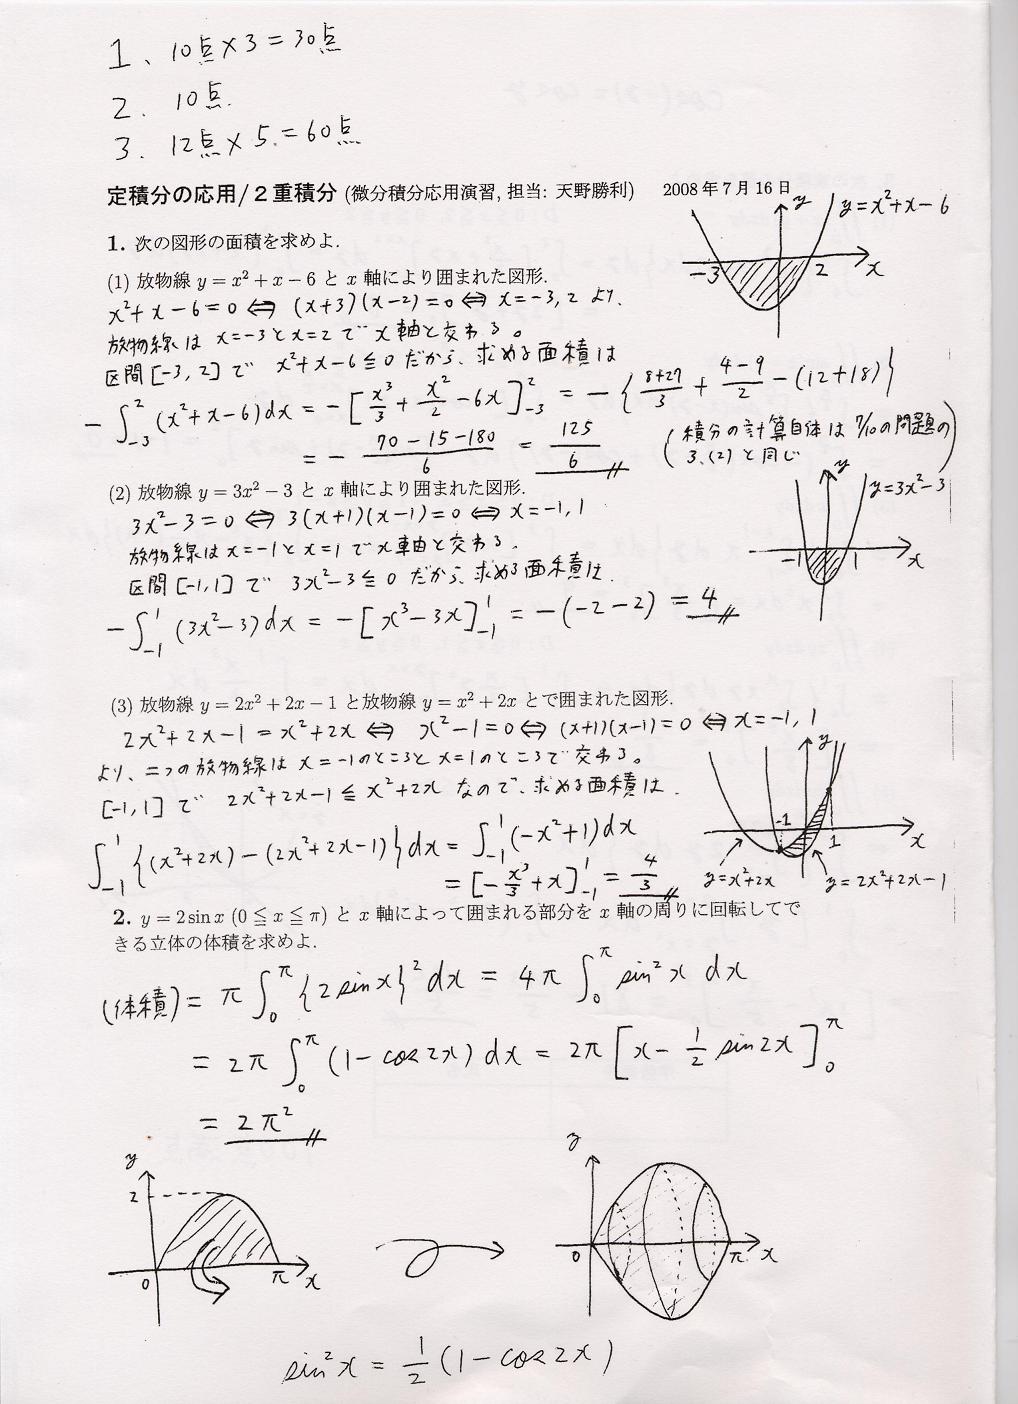 1、 10点×3=30点
2. 10点.
3. 12点×5.=60点
定積分の応用/2重積分 (微分積分応用演習, 担当: 天野勝利) 2008年7月16日
y y=x²+x−6
−3 2 x
1. 次の図形の面積を求めよ.
(1) 放物線 y = x² + x − 6 と x 軸により囲まれた図形.
x²+x−6=0 ⇔ (x+3)(x−2)=0 ⇔ x=−3, 2 より、
放物線は x=−3とx=2で x軸と交わる。
区間 [−3, 2] で x²+x−6≦0 だから、求める面積は
−∫₋₃² (x²+x−6)dx = −[x³/3 + x²/2 − 6x]₋₃² = −{(8+27)/3 + (4−9)/2 − (12+18)}
= − (70−15−180)/6 = 125/6
(積分の計算自体は 7/10の問題の
3.(2)と同じ)
(2) 放物線 y = 3x² − 3 と x 軸により囲まれた図形.
y y=3x²−3
−1 1 x
3x²−3=0 ⇔ 3(x+1)(x−1)=0 ⇔ x=−1, 1
放物線はx=−1とx=1でx車軸と交わる.
区間 [−1,1] で 3x²−3≦0 だから、求める面積は.
−∫₋₁¹ (3x²−3)dx = −[x³−3x]₋₁¹ = −(−2−2) = 4
(3) 放物線 y = 2x² + 2x − 1 と放物線 y = x² + 2x とで囲まれた図形.
2x²+2x−1 = x²+2x ⇔ x²−1=0 ⇔ (x+1)(x−1)=0 ⇔ x=−1, 1
より、二つの放物線は x=−1のところと x=1のところで交わる。
[−1,1] で 2x²+2x−1≦x²+2x なので、求める面積は.
∫₋₁¹ {(x²+2x)−(2x²+2x−1)}dx = ∫₋₁¹ (−x²+1)dx
= [−x³/3+x]₋₁¹ = 4/3
y
−1 1 x
y=x²+2x y=2x²+2x−1
2. y = 2 sin x (0 ≦ x ≦ π) と x 軸によって囲まれる部分を x 軸の周りに回転してで
きる立体の体積を求めよ.
(体積) = π∫₀^π {2sinx}² dx = 4π∫₀^π sin²x dx
= 2π∫₀^π (1−cos2x) dx = 2π[x − 1/2 sin2x]₀^π
= 2π²
y y
2
0 π x 0 π x
sin²x = 1/2 (1−cos2x)